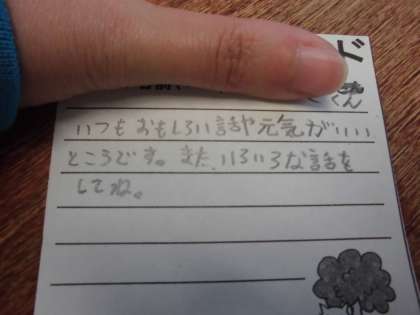 ド
くん
いつもおもしろい話や元気がいい
ところです。また、いろいろな話を
してね。